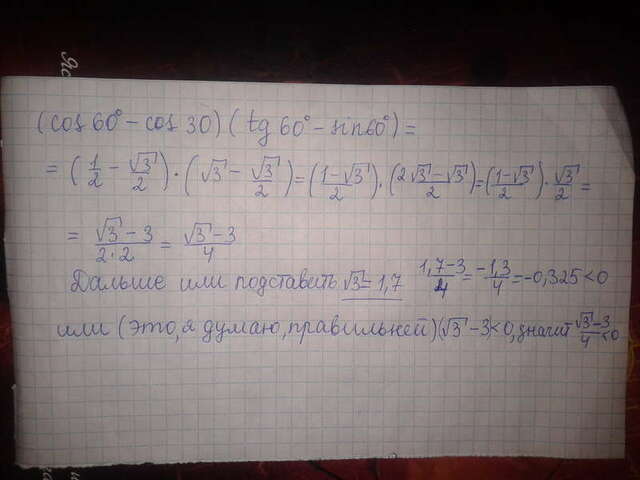 Яс
(cos 60° - cos 30) (tg 60° - sin60°) =
= (1/2 - √3/2) · (√3 - √3/2) = (1-√3/2) · (2√3-√3/2) = (1-√3/2) · √3/2 =
= √3-3/2·2 = √3-3/4
Дальше или подставить √3=1,7 1,7-3/4 = -1,3/4 = -0,325<0
или (это, я думаю, правильней) (√3-3)<0, значит √3-3/4<0